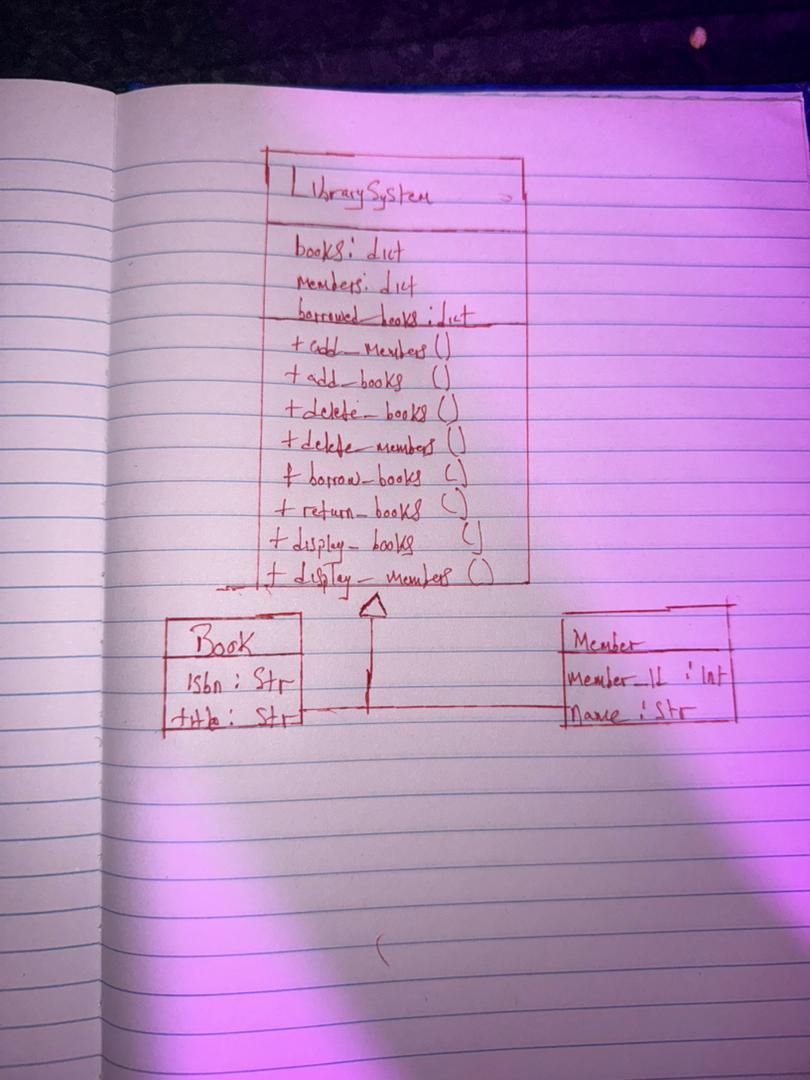 LibrarySystem
books: dict
members: dict
borrowed_books: dict
+ add_members()
+ add_books ()
+ delete_books()
+ delete_members()
+ borrow_books ()
+ return_books ()
+ display_books ()
+ display_members ()
Book
isbn: Str
title: Str
Member
member_Id: Int
name: Str